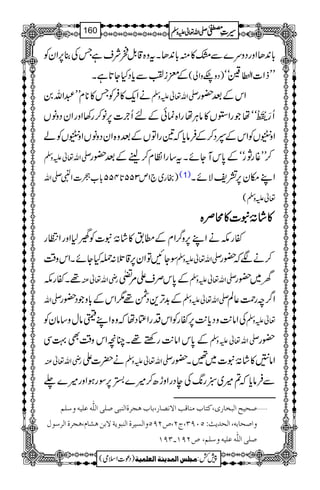 160 سیرتِ مصطفیٰ صلی اللہ تعالیٰ علیہ وسلم
باندھا اور دوسرے سے مشک کا منہ باندھا۔ یہ وہ قابل فخر شرف ہے جس کی بنا پر ان کو
’’ذات النطاقین‘‘ (دو پٹکے والی) کے معزز لقب سے یاد کیا جاتا ہے۔
اس کے بعد حضور صلی اللہ تعالیٰ علیہ وسلم نے ایک کافر کو جس کا نام ’’عبداللہ بن
اُرَیْقِط‘‘ تھا جو راستوں کا ماہر تھا راہ نمائی کے لئے اُجرت پر نوکر رکھا اور ان دونوں
اونٹنیوں کو اس کے سپرد کر کے فرمایا کہ تین راتوں کے بعد وہ ان دونوں اونٹنیوں کو لے
کر ’’غار ثور‘‘ کے پاس آ جائے۔ یہ سارا نظام کر لینے کے بعد حضور صلی اللہ تعالیٰ علیہ وسلم
اپنے مکان پر تشریف لائے۔(1) (بخاری ج۱ ص۵۵۳ تا ۵۵۴ باب ہجرت النبی صلی اللہ
تعالیٰ علیہ وسلم)
کاشانۂ نبوت کا محاصرہ
کفار مکہ نے اپنے پروگرام کے مطابق کاشانۂ نبوت کو گھیر لیا اور انتظار
کرنے لگے کہ حضور صلی اللہ تعالیٰ علیہ وسلم سو جائیں تو ان پر قاتلانہ حملہ کیا جائے۔ اس وقت
گھر میں حضور صلی اللہ تعالیٰ علیہ وسلم کے پاس صرف علی مرتضیٰ رضی اللہ تعالیٰ عنہ تھے۔ کفار مکہ
اگرچہ رحمت عالم صلی اللہ تعالیٰ علیہ وسلم کے بدترین دشمن تھے مگر اس کے باوجود حضور صلی اللہ
تعالیٰ علیہ وسلم کی امانت و دیانت پر کفار کو اس قدر اعتماد تھا کہ وہ اپنے قیمتی مال و سامان کو
حضور صلی اللہ تعالیٰ علیہ وسلم کے پاس امانت رکھتے تھے۔ چنانچہ اس وقت بھی بہت سی
امانتیں کاشانۂ نبوت میں تھیں۔ حضور صلی اللہ تعالیٰ علیہ وسلم نے حضرت علی رضی اللہ تعالیٰ عنہ
سے فرمایا کہ تم میری سبز رنگ کی چادر اوڑھ کر میرے بستر پر سو رہو اور میرے چلے
۱……صحیح البخاری، کتاب مناقب الانصار، باب ھجرۃ النبی صلی اللہ علیہ وسلم
واصحابہ، الحدیث: ۳۹۰۵، ج۲، ص۵۹۲ والسیرۃ النبویۃ لابن ھشام، ھجرۃ الرسول
صلی اللہ علیہ وسلم، ص۱۹۲۔۱۹۳
پیش کش: مجلس المدینۃ العلمیۃ (دعوتِ اسلامی)